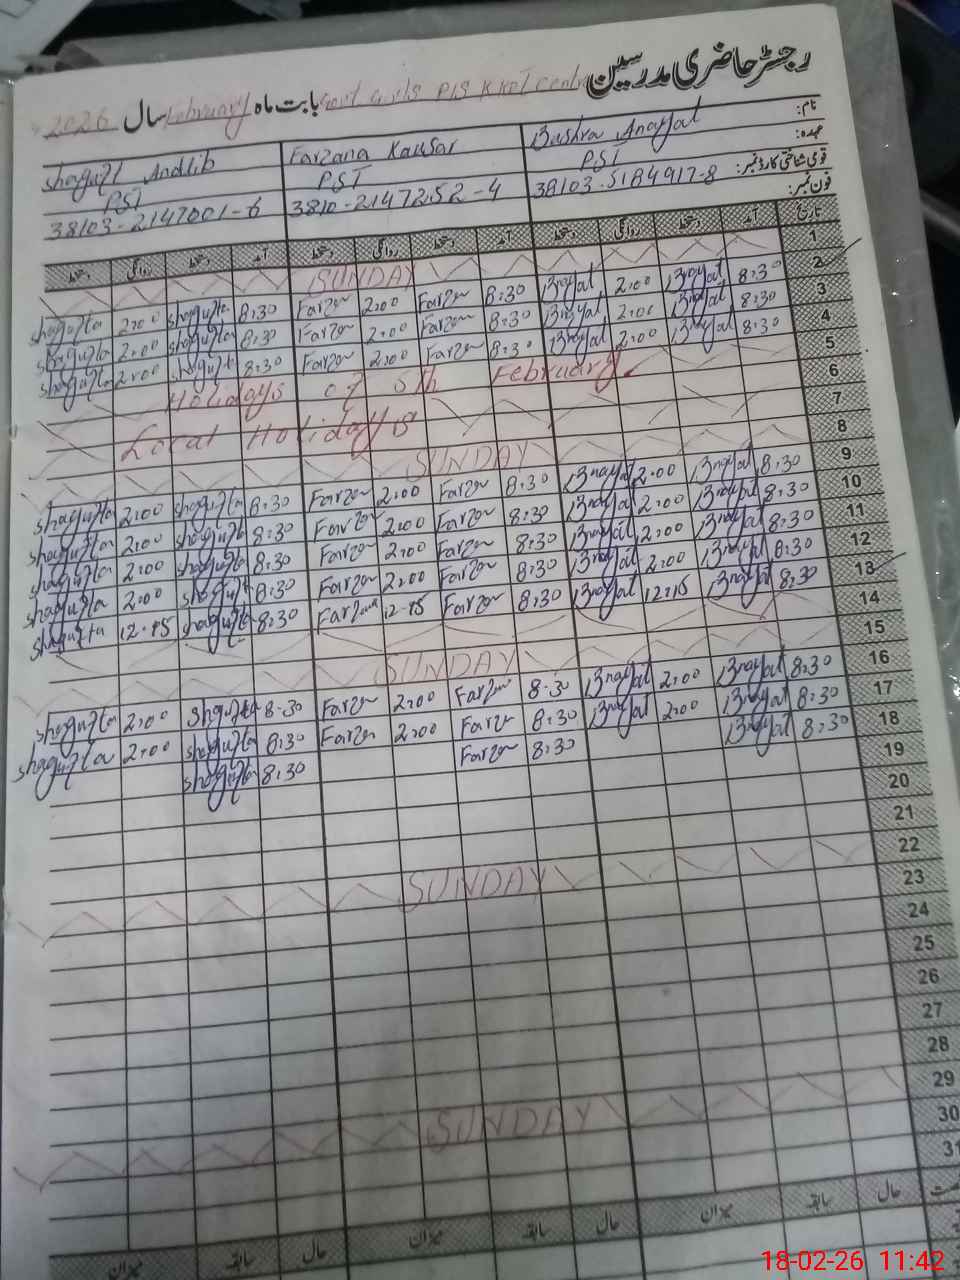 رجسٹر حاضری مدرسین
Govt Girls P/S K Kot Centre بابت ماہ February سال 2026
نام: Bushra Anayat Farzana Kausar Shagufta Andlib
عہدہ: PST PST PST
قومی شناختی کارڈ نمبر: 38103-5184917-8 3810-2147252-4 38103-2147001-6
فون نمبر:
تاریخ آمد دستخط روانگی دستخط آمد دستخط روانگی دستخط آمد دستخط روانگی دستخط
SUNDAY 1
shagufta 2:00 shagufta 8:30 Farzan 2:00 Farzan 8:30 Bnayat 2:00 Bnayat 8:30 2
shagufta 2:00 shagufta 8:30 Farzan 2:00 Farzan 8:30 Bnayat 2:00 Bnayat 8:30 3
shagufta 2:00 shagufta 8:30 Farzan 2:00 Farzan 8:30 Bnayat 2:00 Bnayat 8:30 4
Holidays of 5th February. 5
6
Local Holiday 7
SUNDAY 8
shagufta 2:00 shagufta 8:30 Farzan 2:00 Farzan 8:30 Bnayat 2:00 Bnayat 8:30 9
shagufta 2:00 shagufta 8:30 Farzan 2:00 Farzan 8:30 Bnayat 2:00 Bnayat 8:30 10
shagufta 2:00 shagufta 8:30 Farzan 2:00 Farzan 8:30 Bnayat 2:00 Bnayat 8:30 11
shagufta 2:00 shagufta 8:30 Farzan 2:00 Farzan 8:30 Bnayat 2:00 Bnayat 8:30 12
shagufta 12-15 shagufta 8:30 Farzan 12-15 Farzan 8:30 Bnayat 12:15 Bnayat 8:30 13
14
SUNDAY 15
shagufta 2:00 shagufta 8:30 Farzan 2:00 Farzan 8:30 Bnayat 2:00 Bnayat 8:30 16
shagufta 2:00 shagufta 8:30 Farzan 2:00 Farzan 8:30 Bnayat 2:00 Bnayat 8:30 17
shagufta 8:30 Farzan 8:30 Bnayat 8:30 18
19
20
21
SUNDAY 22
23
24
25
26
27
28
SUNDAY 29
30
31
حال سابقہ میزان حال سابقہ میزان حال سابقہ میزان
18-02-26 11:42